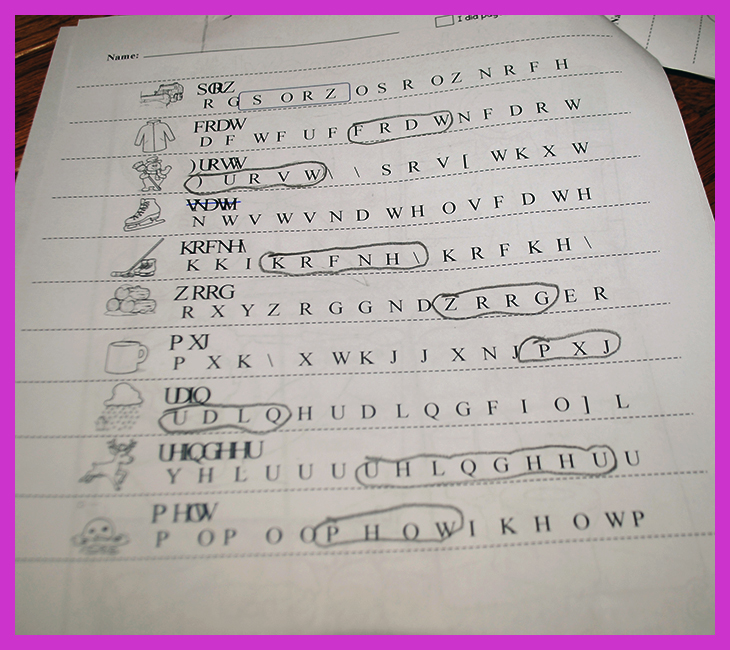 I did pag
Name:
SQRZ
R G S O R Z O S R O Z N R F H
FRDW
D F W F U F F R D W N F D R W
) URVW
) U R V W \ \ S R V [ W K X W
N W V W V N D W H O V F D W H
KRFNH\
K K I K R F N H \ K R F K H \
ZRRG
R X Y Z R G G N D Z R R G E R
PXJ
P X K \ X W K J J X N J P X J
UDLQ
U D L Q H U D L Q G F I O ] L
UHLQGHHU
Y H L U U U U H L Q G H H U U
PHOW
P O P O O P H O W I K H O W P